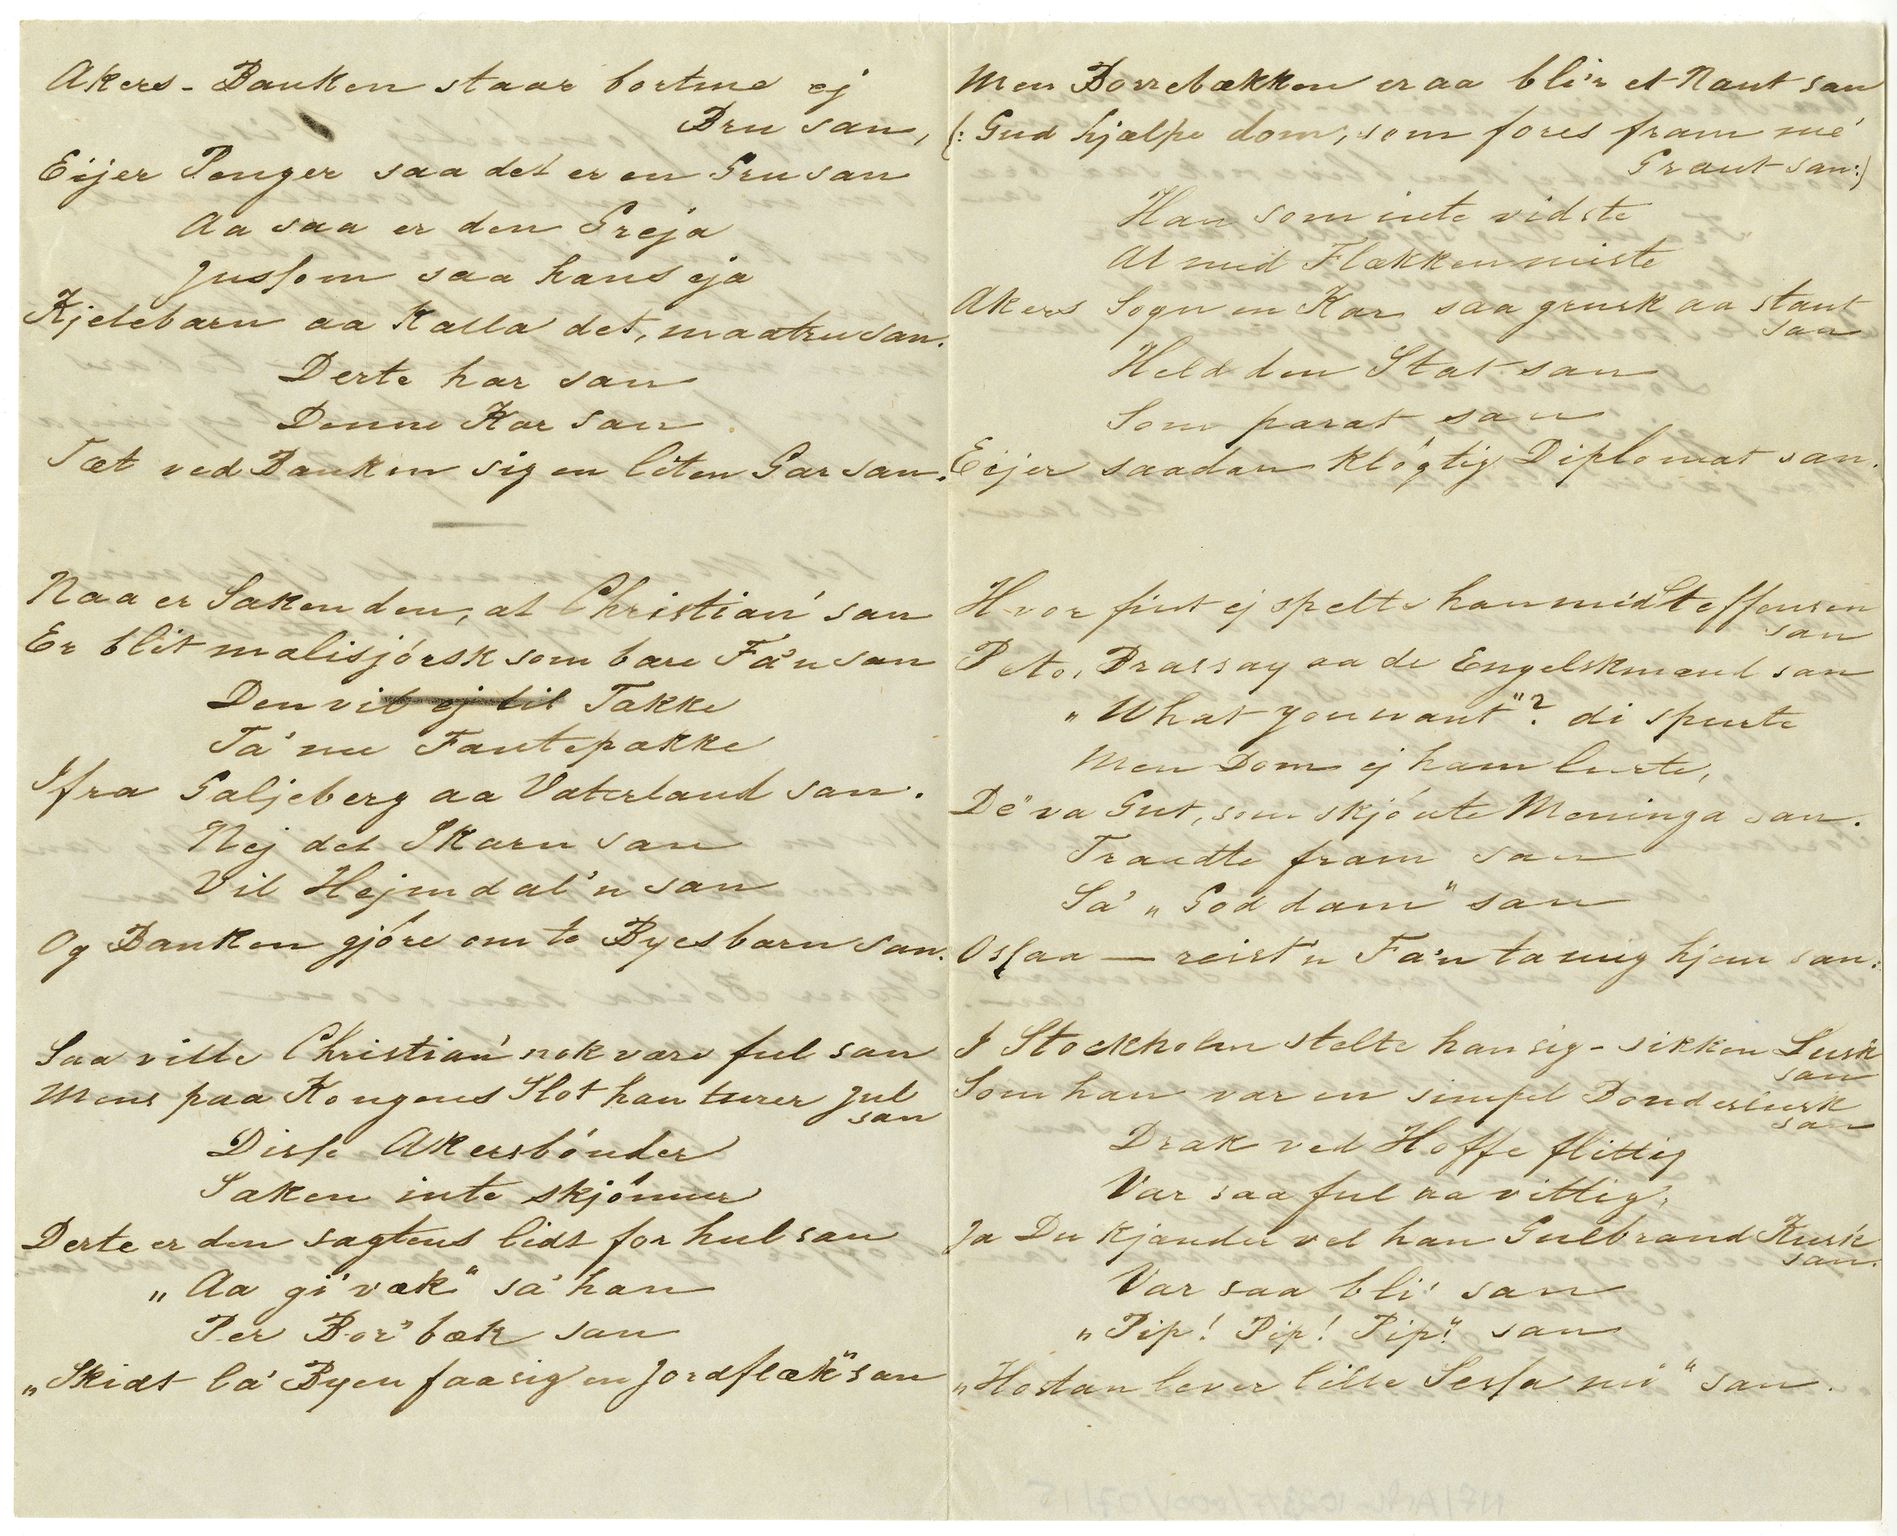 Akers-Banken staar bortme ej
Bru san,
Eijer Penger saa det er en Gru san
Aa saa er den Greja
Jussom saa hans eja
Kjelebarn aa Kalla det, maatru san.
Derte har san
Denne Kar san
Tæt ved Banken sig en liten Gar san.
Naa er Saken den, at Christian' san
Er blit malisjórsk som bare Fa'n san
Den vil ej til Takke
Ta' nu Fantepakke
Ifra Galjeberg aa Vaterland san.
Nej det Skarn san
Vil Hejmdal'n san
Og Banken gjóre om te Byesbarn san.
Saa vilte Christian' nok være ful san
Mens paa Kongens Slot han turer Jul
san
Disse Akersbónder
Saken inte skjónner
Derte er den sagtens lidt for hul san
„Aa gi' væk" sa' han
Per Bor'bæk san
„Skidt la' Byen faa sig en Jordflæk" san
Men Borrebækken er aa bli'r et Naut san
(: Gud hjælpe dom, som fores fram me'
Graut san:)
Han som inte vidste
At med Flækken miste
Akers Sogn en Kar saa grusk aa staut
san
Held den Stat san
Som parat san
Eijer saadan klógtig Diplomat san.
Hvor fint ej spelte han mid Steffensen
san
Peto, Brassay aa de Engelskmænd san
„What you want"? di spurte
Men Dom ej ham lurte,
De' va Gut, som skjónte Meninga san.
Traadte fram san
Sa' „God dam" san
Ossaa — reist'n Fa'n ta mig hjem san.
I Stockholm stelte han sig - sikken Lusk
san
Som han var en simpel Bonderlursk
san
Drak ved Hoffe flittig
Var saa ful aa vittig,
Ja Du kjander vel han Gulbrand Kusk
san.
Var saa bli' san
„Pip! Pip! Pip!" san
„Hostan lever lille Sessa mi" san.